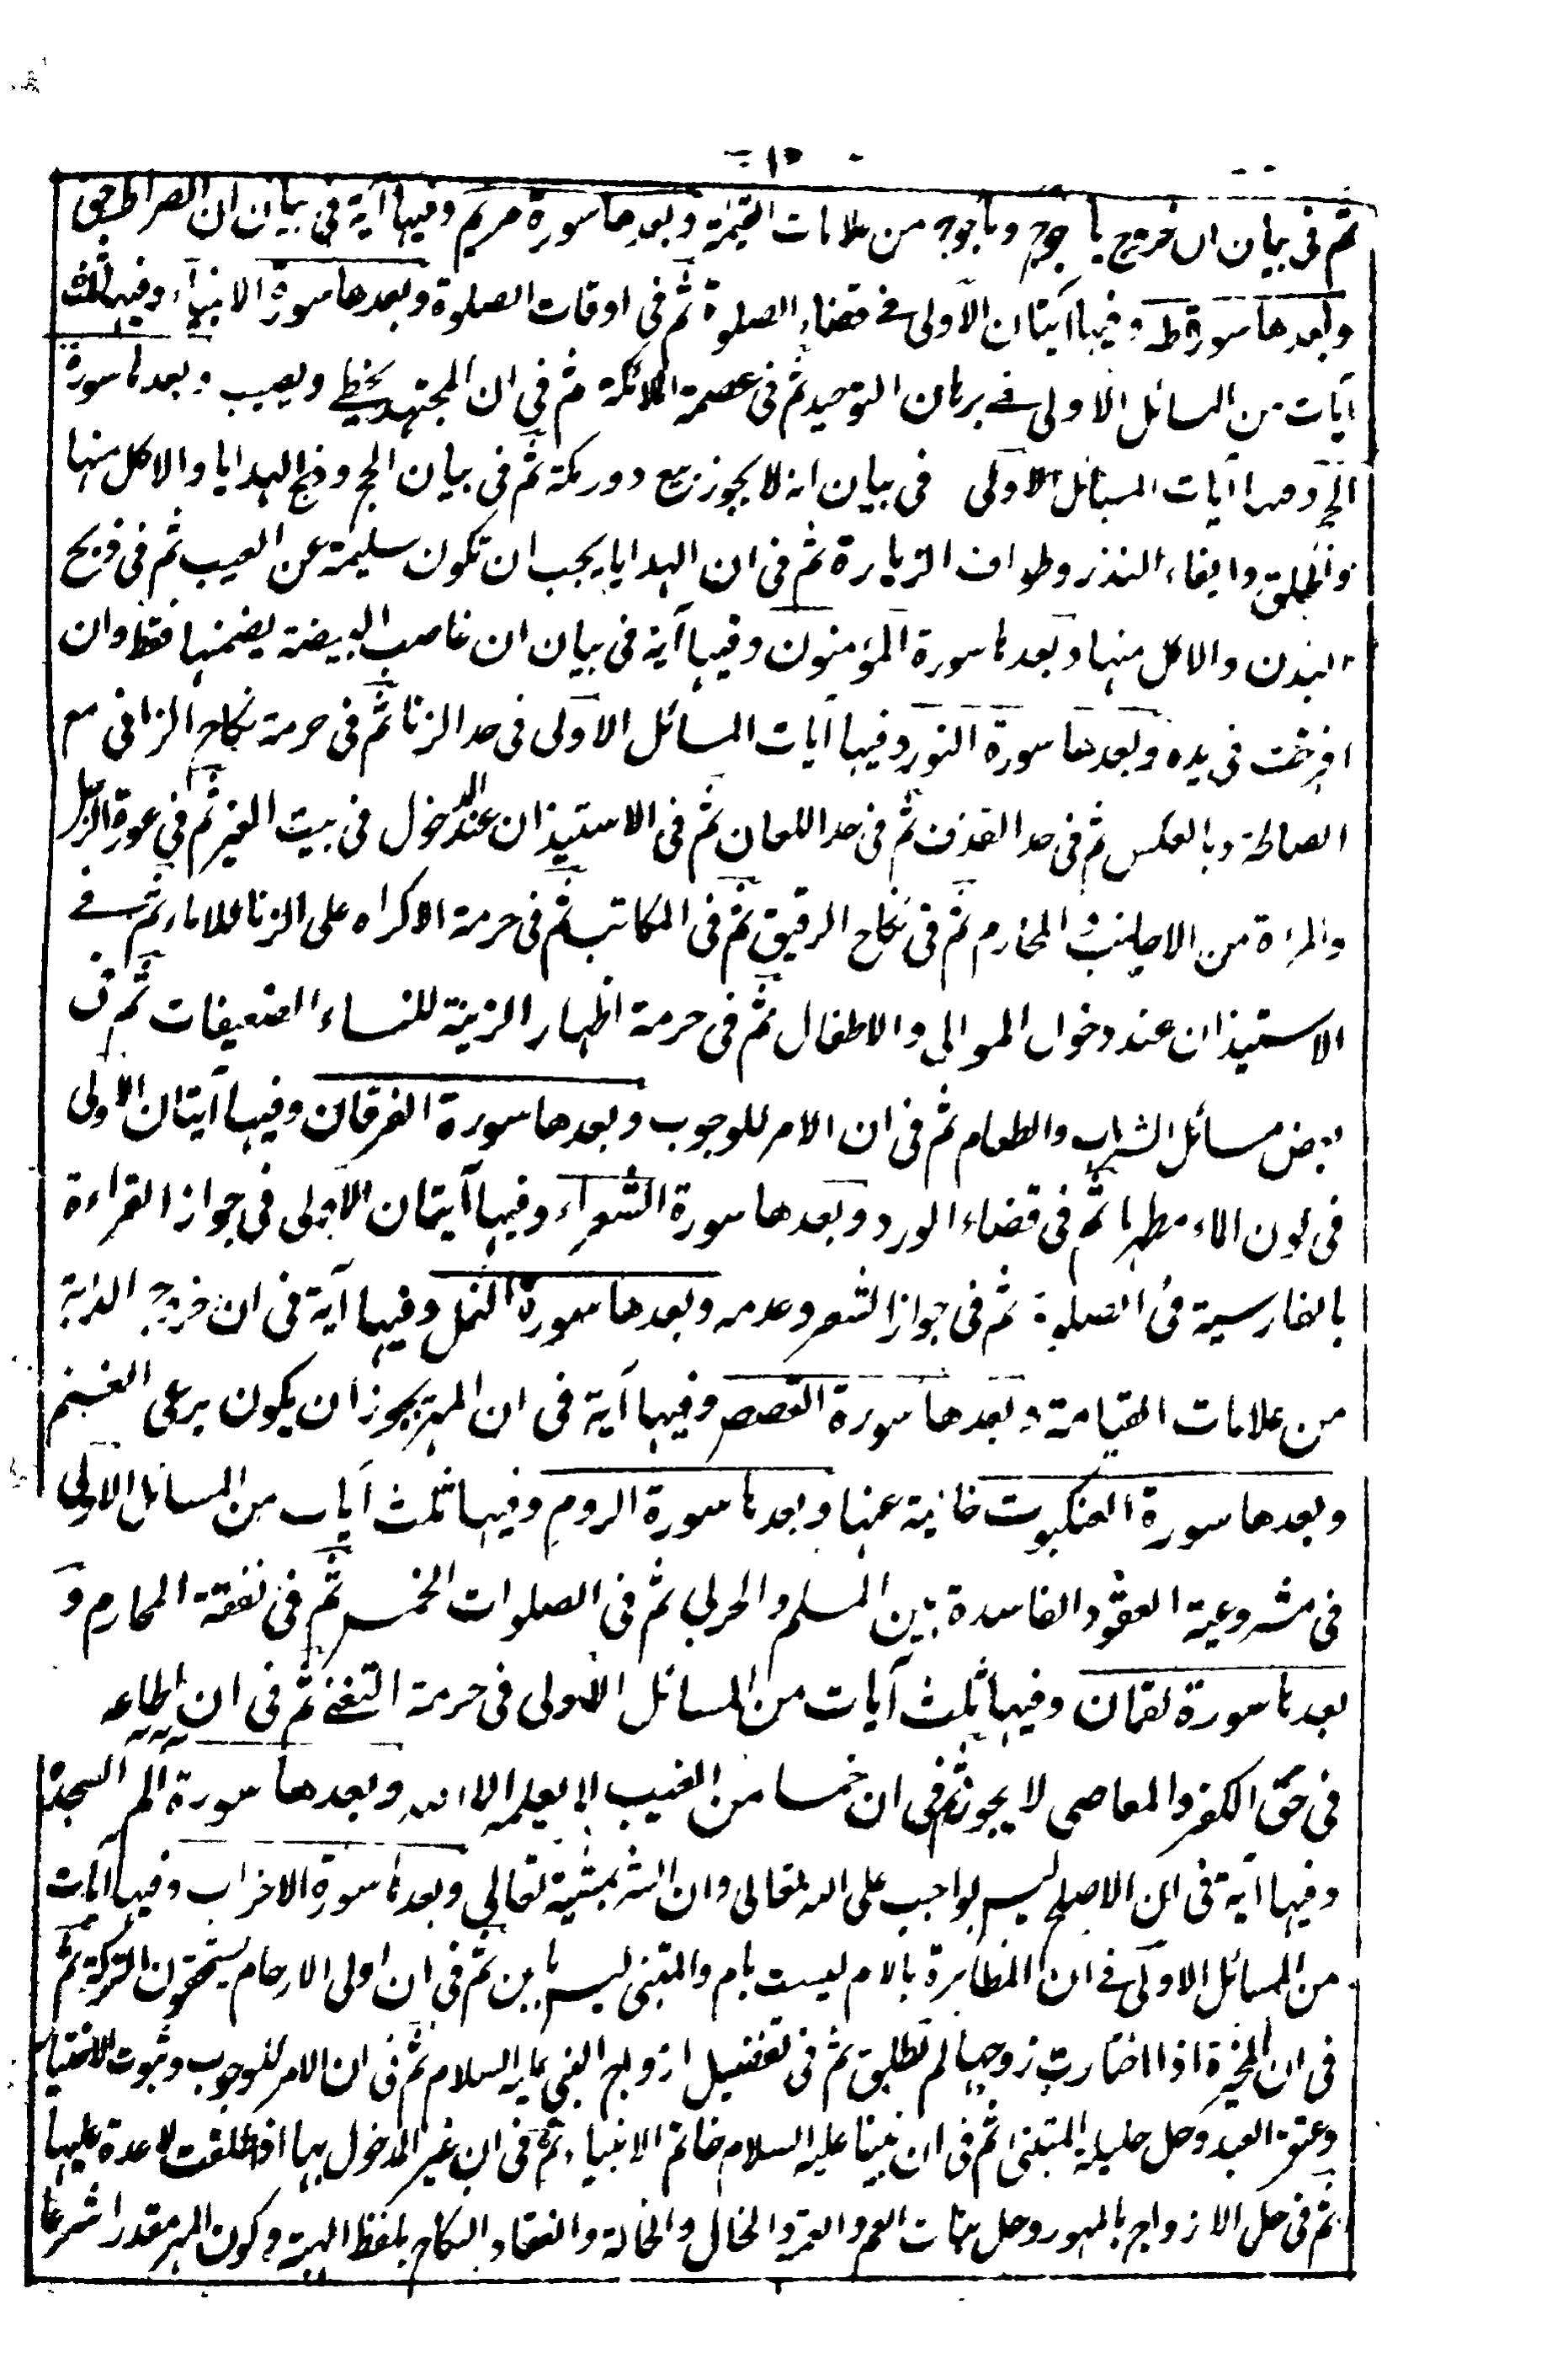 ١٠
ثم فى بيان ان خروج ياجوج وماجوج من علامات القيمة وبعدها سورة مريم وفيها آية فى بيان ان الصراط حق
وبعدها سورة طه وفيها آيتان الاولى فى قضاء الصلوة ثم فى اوقات الصلوة وبعدها سورة الانبياء وفيها ثلث
آيات من المسائل الاولى فى برهان التوحيد ثم فى عصمة الملائكة ثم فى ان المجتهد يخطى ويصيب وبعدها سورة
الحج وفيها آيات المسائل الاولى فى بيان انه لا يجوز بيع دور مكة ثم فى بيان الحج وذبح الهدايا والاكل منها
والحلق وايفاء النذر وطواف الزيارة ثم فى ان الهدايا يجب ان تكون سليمة عن العيب ثم فى ذبح
البدن والاكل منها وبعدها سورة المؤمنون وفيها آية فى بيان ان غاصب البيضة يضمنها فقط وان
افرخت فى يده وبعدها سورة النور وفيها آيات المسائل الاولى فى حد الزنا ثم فى حرمة نكاح الزانى مع
الصالحة وبالعكس ثم فى حد القذف ثم فى حد اللعان ثم فى الاستيذان عند الدخول فى بيت الغير ثم فى عورة الرجل
والمرءة من الاجانب والمحارم ثم فى نكاح الرقيق ثم فى المكاتب ثم فى حرمة الاكراه على الزنا للاماء ثم فى
الاستيذان عند دخول الموالى والاطفال ثم فى حرمة اظهار الزينة للنساء الضعيفات ثم فى
بعض مسائل الشراب والطعام ثم فى ان الامر للوجوب وبعدها سورة الفرقان وفيها آيتان الاولى
فى كون الماء مطهرا ثم فى قضاء الورد وبعدها سورة الشعراء وفيها آيتان الاولى فى جواز القراءة
بالفارسية فى الصلوة ثم فى جواز الشعر وعدمه وبعدها سورة النمل وفيها آية فى ان خروج الدابة
من علامات القيامة وبعدها سورة القصص وفيها آية فى ان المهر يجوز ان يكون برعى الغنم
وبعدها سورة العنكبوت خالية عنها وبعدها سورة الروم وفيها ثلث آيات من المسائل الاولى
فى مشروعية العقود الفاسدة بين المسلم والحربى ثم فى الصلوات الخمس ثم فى نفقة المحارم و
بعدها سورة لقمان وفيها ثلث آيات من المسائل الاولى فى حرمة التغنى ثم فى ان اطاعة
فى حق الكفر والمعاصى لا يجوز ثم فى ان خمسا من الغيب لا يعلمه الا الله وبعدها سورة الم السجدة
وفيها آية فى ان الاصلح ليس بواجب على الله تعالى وان الشر بمشية تعالى وبعدها سورة الاحزاب وفيها آيات
من المسائل الاولى فى ان المظاهرة بالام ليست بام والمتبنى ليس بابن ثم فى ان اولى الارحام يستحقون التركة ثم
فى ان المخيرة اذا اختارت زوجها لم تطلق ثم فى تفضيل ازواج النبى عليه السلام ثم فى ان الامر للوجوب وثبوت الاختيار
وعتق العبد وحل حليلة المتبنى ثم فى ان نبينا عليه السلام خاتم الانبياء ثم فى ان غير المدخول بها اذا طلقت لا عدة عليها
ثم فى حل الازواج بالمهور وحل بنات العم والعمة والخال والخالة وانعقاد النكاح بلفظ الهبة وكون المهر مقدرا شرعا